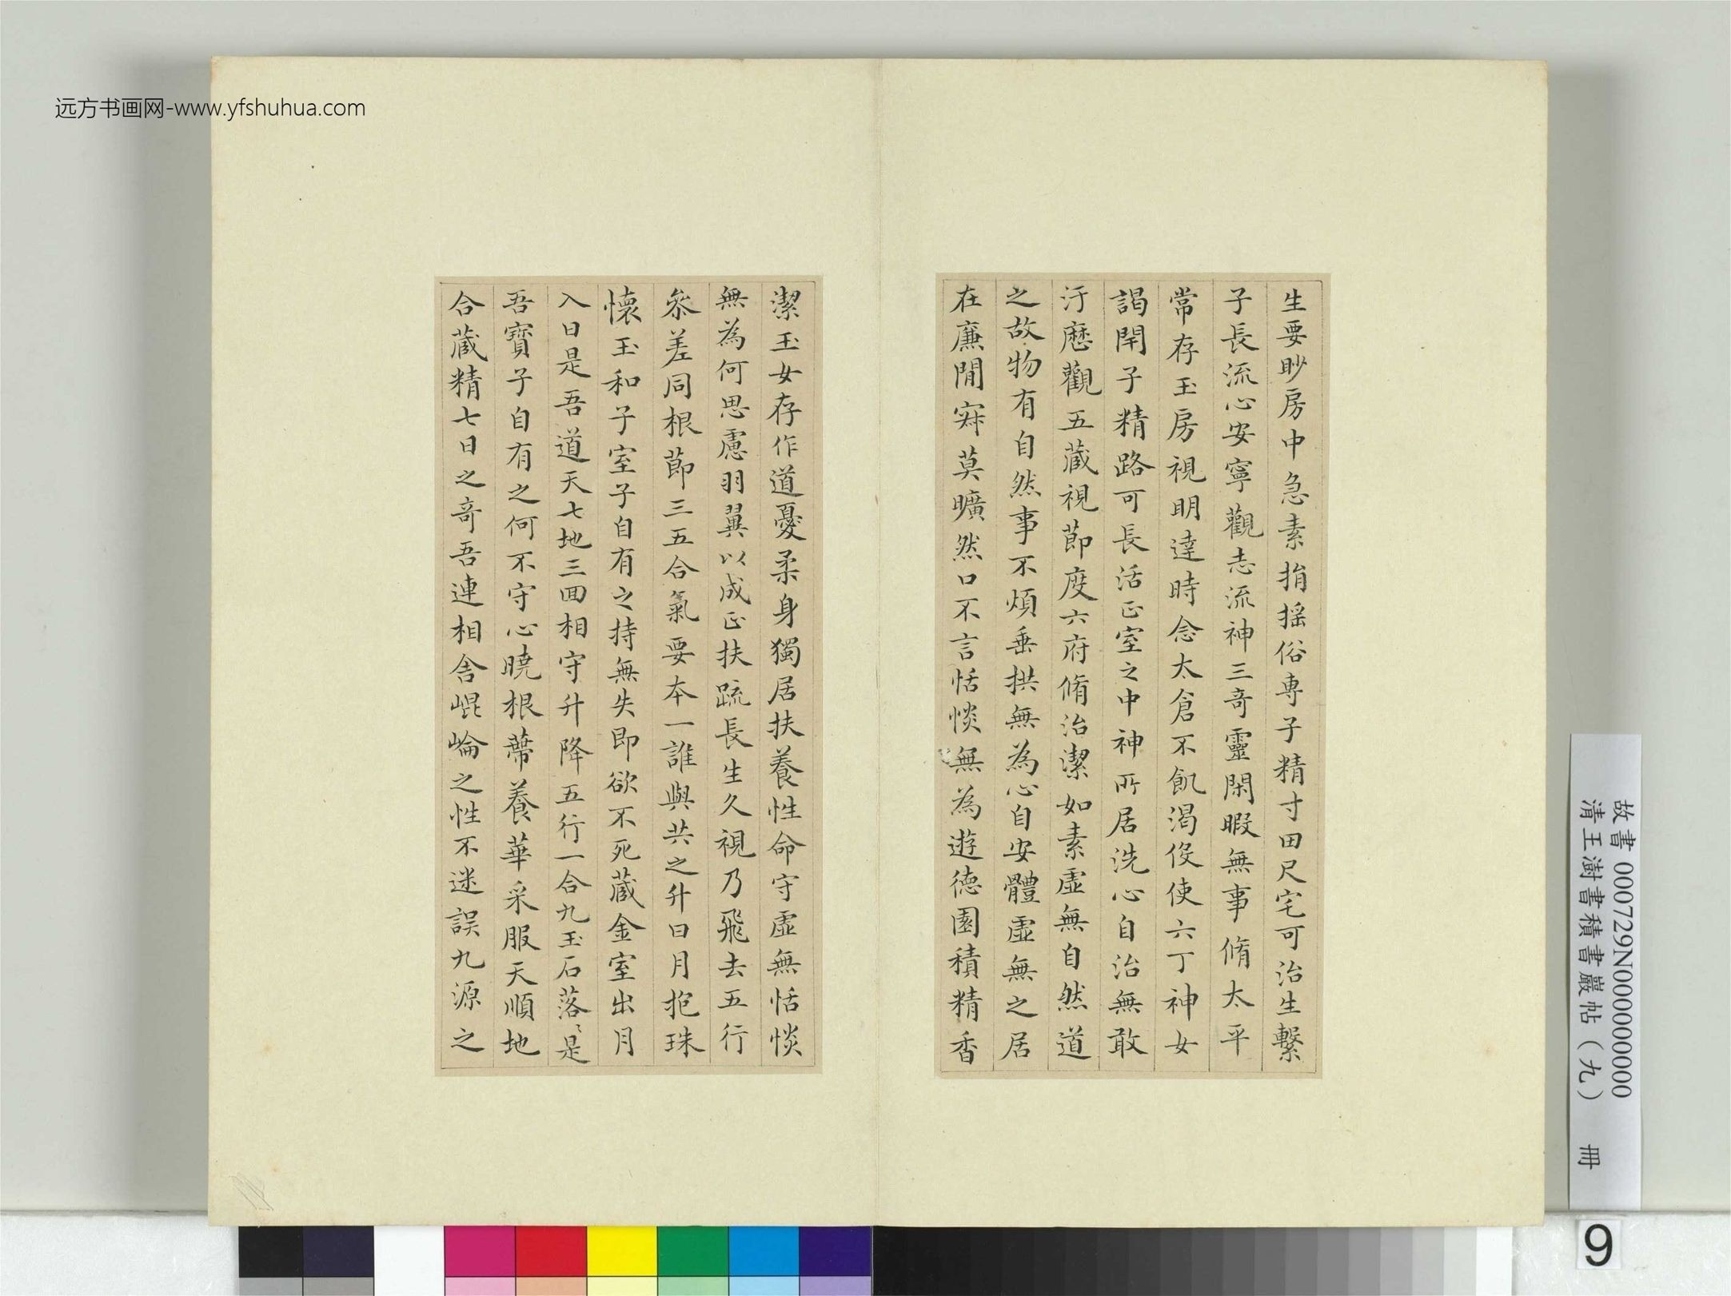 远方书画网-www.yfshuhua.com
生要眇房中急素捐搖俗專子精寸田尺宅可治生繫
子長流心安寧觀志流神三奇靈閑暇無事脩太平
常存玉房視明達時念太倉不飢渴役使六丁神女
謁閉子精路可長活正室之中神所居洗心自治無敢
汙歷觀五藏視節度六府脩治潔如素虛無自然道
之故物有自然事不煩垂拱無為心自安體虛無之居
在廉閒寂莫曠然口不言恬惔無為遊德園積精香
潔玉女存作道憂柔身獨居扶養性命守虛無恬惔
無為何思慮羽翼以成正扶疏長生久視乃飛去五行
參差同根節三五合氣要本一誰與共之升日月抱珠
懷玉和子室子自有之持無失即欲不死藏金室出月
入日是吾道天七地三回相守升降五行一合九玉石落々是
吾寶子自有之何不守心曉根蔕養華采服天順地
合藏精七日之奇吾連相舍崐崘之性不迷誤九源之
故書 000729N000000000
清王澍書積書巖帖（九） 冊
9